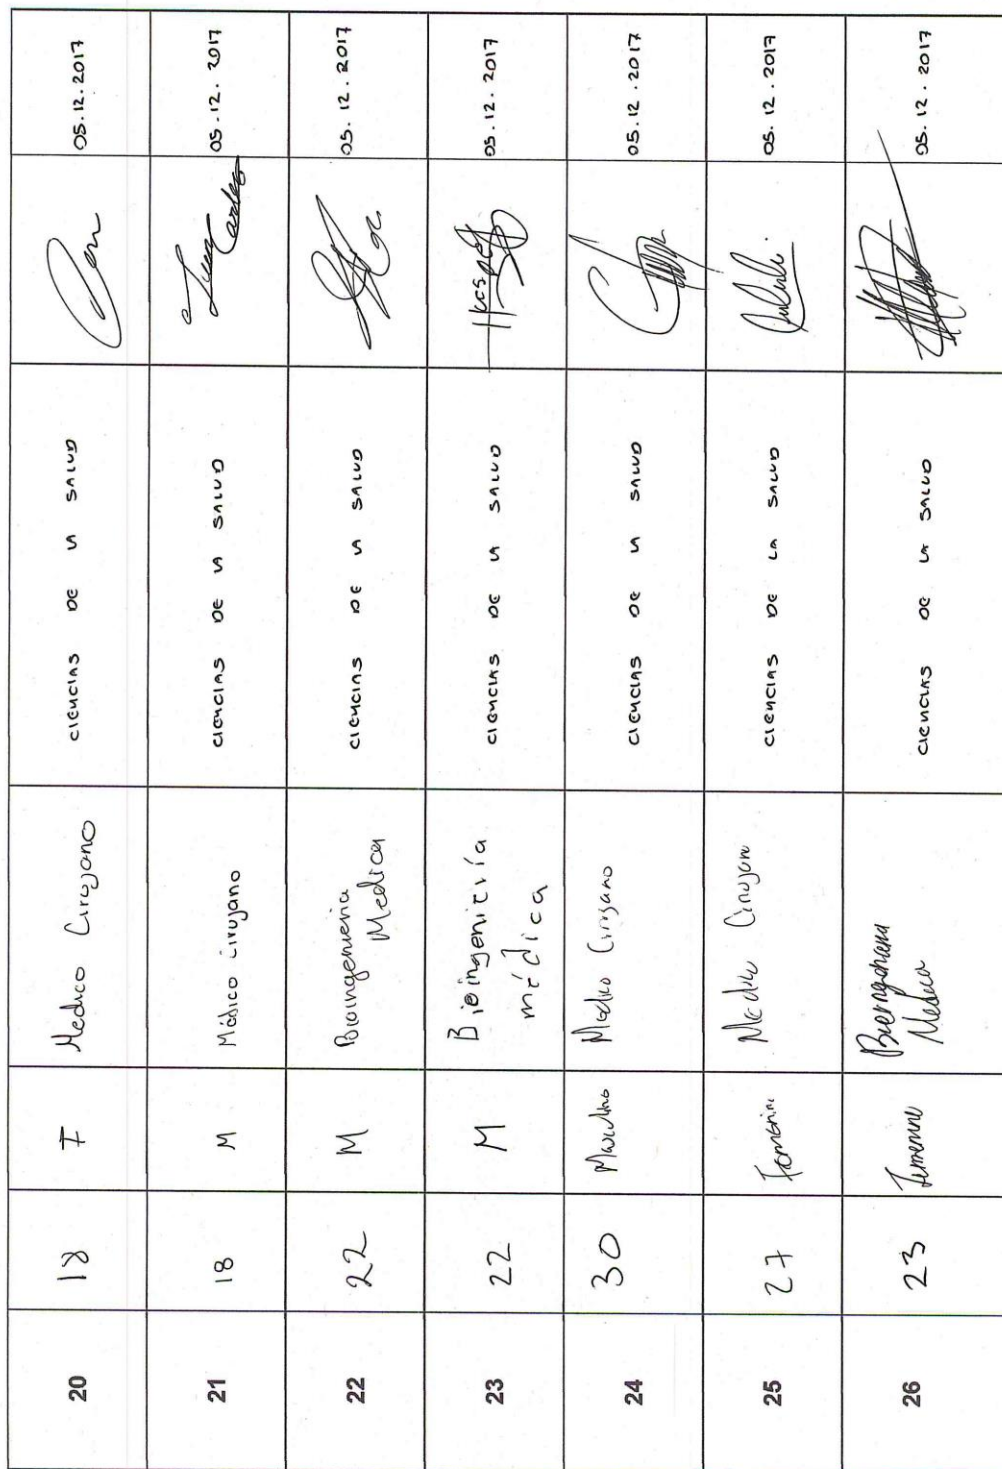 20 18 F Medico Cirujano CIENCIAS DE LA SALUD 05.12.2017
21 18 M Médico Cirujano CIENCIAS DE LA SALUD 05.12.2017
22 22 M Bioingenieria Medica CIENCIAS DE LA SALUD 05.12.2017
23 22 M Bioingeniería médica CIENCIAS DE LA SALUD 05.12.2017
24 30 Masculino Medico Cirujano CIENCIAS DE LA SALUD 05.12.2017
25 27 Femenino Medico Cirujano CIENCIAS DE LA SALUD 05.12.2017
26 23 Femenino Bioingenieria Medica CIENCIAS DE LA SALUD 05.12.2017